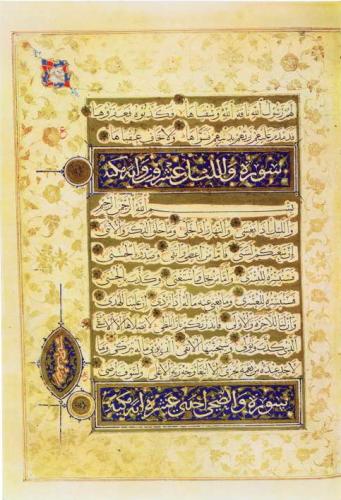 لهم رسول الله ناقة الله وسقياها فكذبوه فعقروها
فدمدم عليهم ربهم بذنبهم فسواها ولا يخاف عقباها
سورة والليل عشرون واية مكية
بسم الله الرحمن الرحيم
والليل إذا يغشى والنهار إذا تجلى وما خلق الذكر والأنثى
إن سعيكم لشتى فأما من أعطى واتقى وصدق بالحسنى
فسنيسره لليسرى وأما من بخل واستغنى وكذب بالحسنى
فسنيسره للعسرى وما يغني عنه ماله إذا تردى إن علينا للهدى
وإن لنا للآخرة والأولى فأنذرتكم نارا تلظى لا يصلاها إلا الأشقى
الذي كذب وتولى وسيجنبها الأتقى الذي يؤتي ماله يتزكى وما
لأحد عنده من نعمة تجزى إلا ابتغاء وجه ربه الأعلى ولسوف يرضى
سورة والضحى احدى عشرة اية مكية